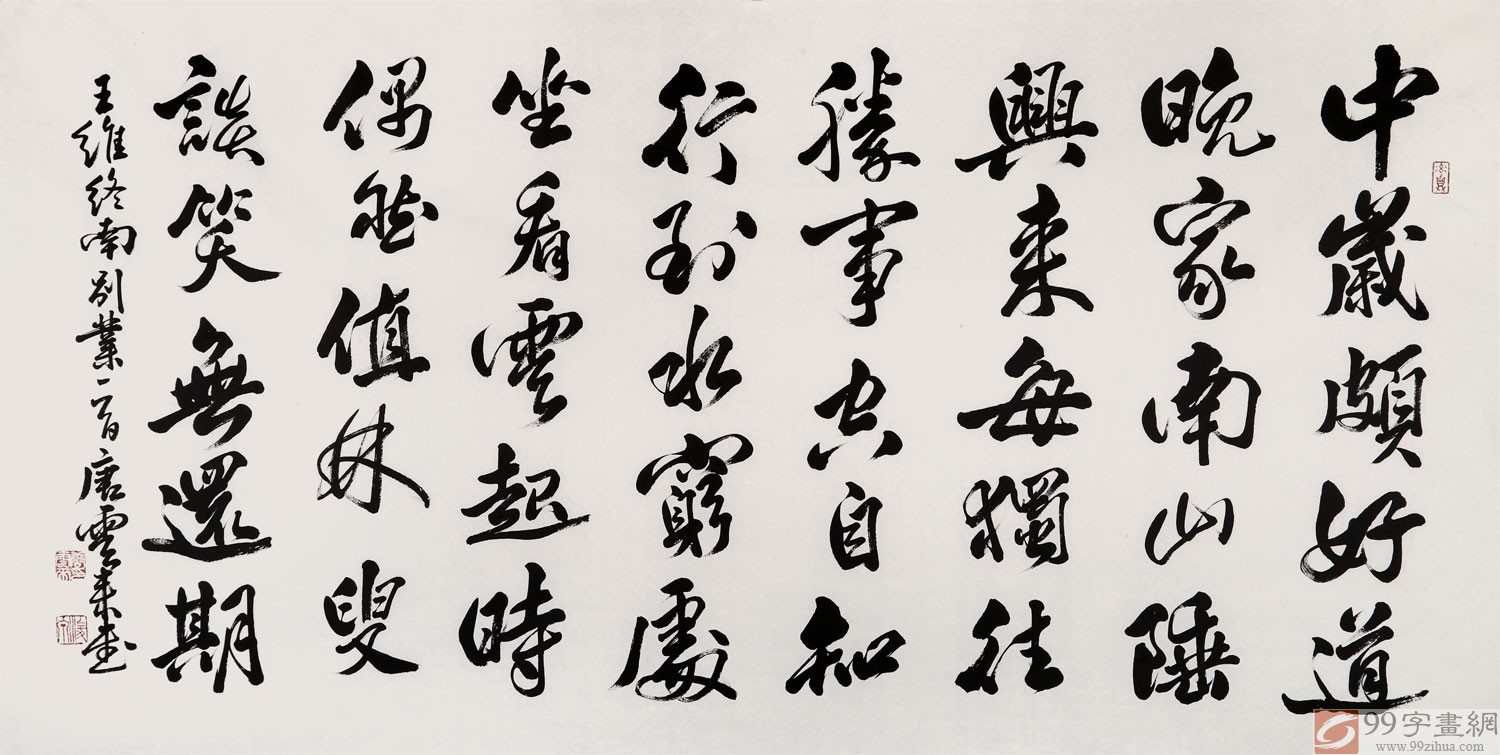 中歲頗好道
晚家南山陲
興来每獨往
勝事空自知
行到水窮處
坐看雲起時
偶然值林叟
談笑無還期
王維終南別業一首 唐雲来書
99字畫網
www.99zihua.com